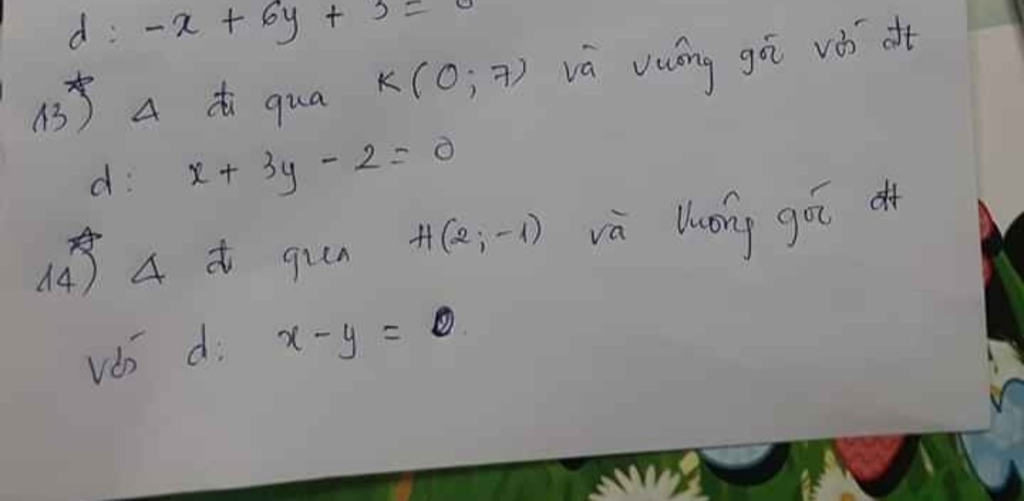 d: -x + 6y + 3 = 0
13*) Δ đi qua K(0; 7) và vuông góc với đt
d: x + 3y - 2 = 0
14*) Δ đi qua H(2; -1) và vuông góc đt
với d: x - y = 0.